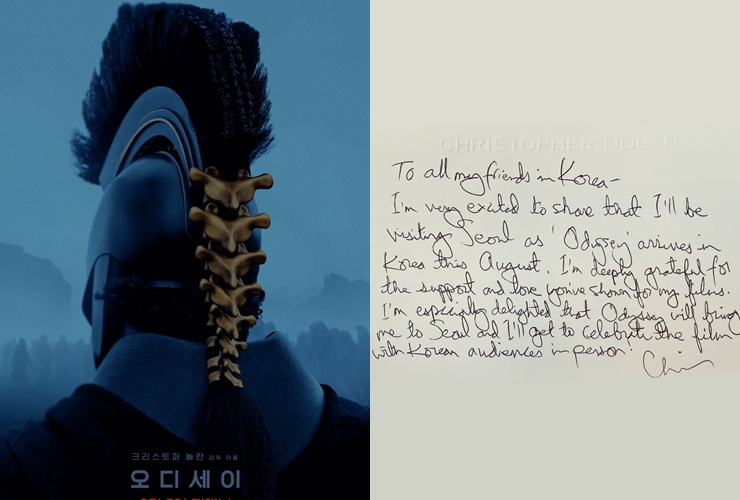 크리스토퍼 놀란 감독 작품
오디세이
CHRISTOPHER NOLAN
To all my friends in Korea-
I'm very excited to share that I'll be
visiting Seoul as 'Odyssey' arrives in
Korea this August. I'm deeply grateful for
the support and love you've shown for my films.
I'm especially delighted that Odyssey will bring
me to Seoul and I'll get to celebrate the film
with Korean audiences in person!
Chris